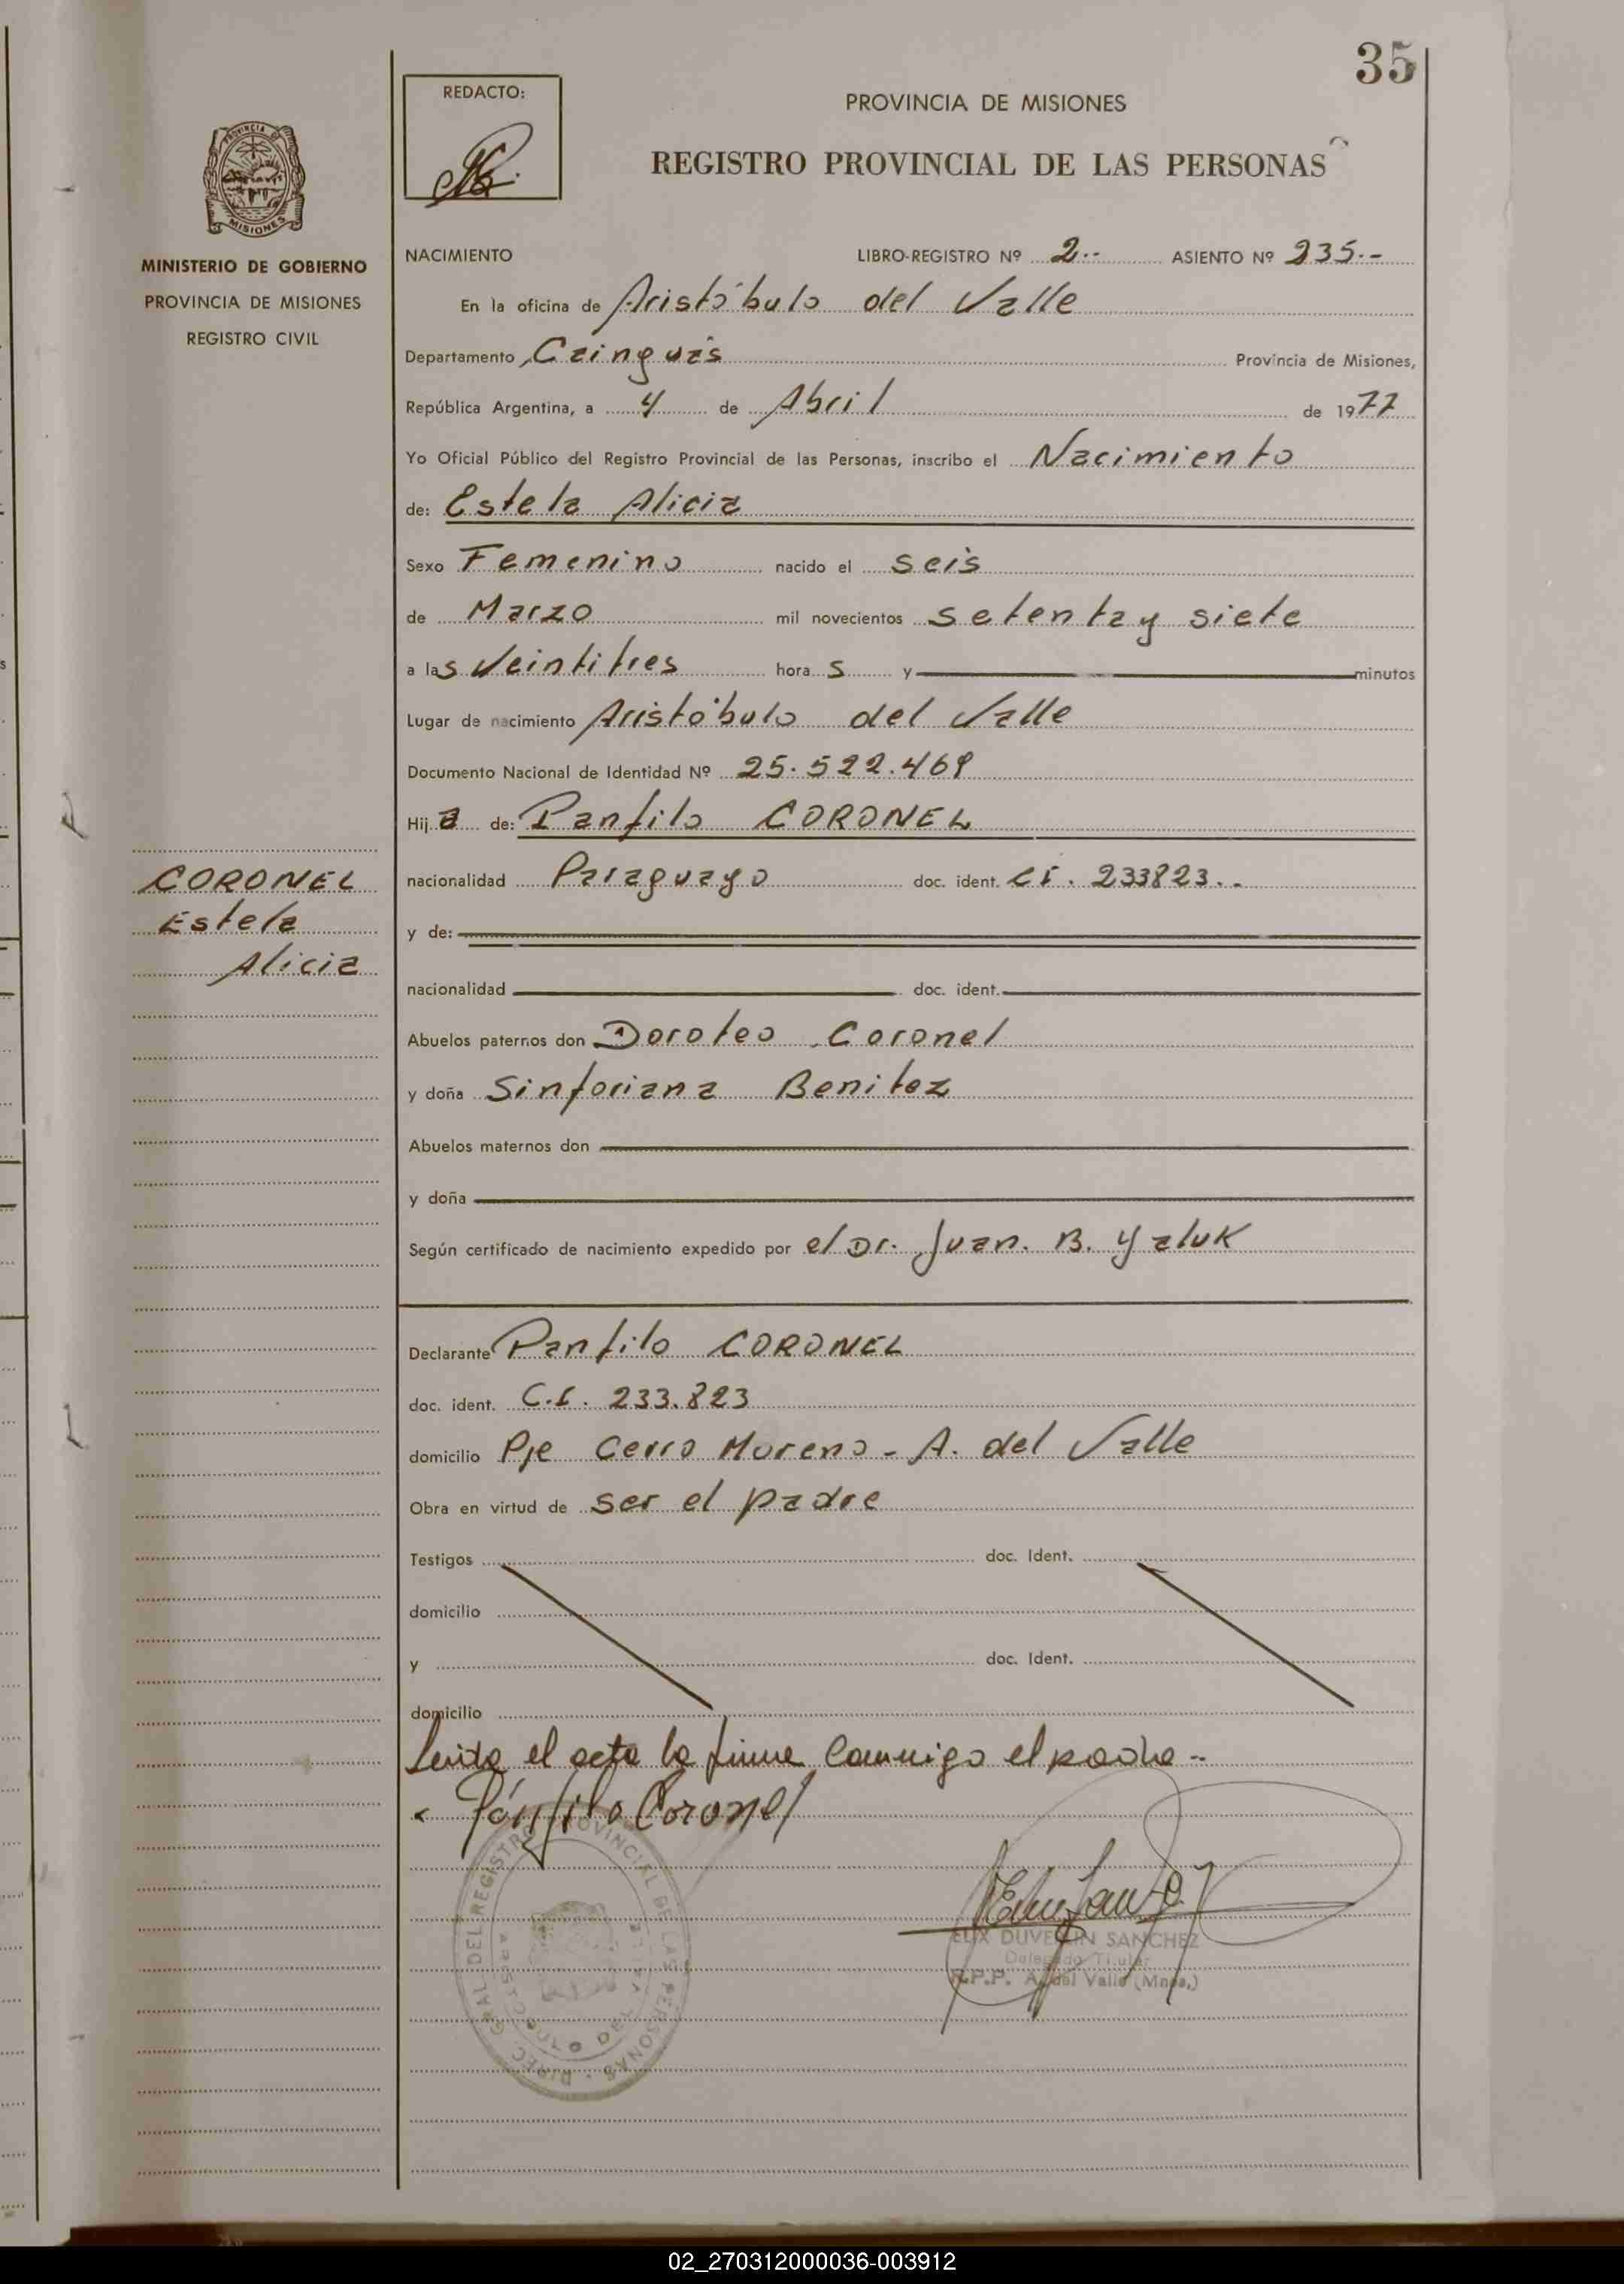 35
REDACTO:
PROVINCIA DE MISIONES
REGISTRO PROVINCIAL DE LAS PERSONAS
PROVINCIA DE
MISIONES
MINISTERIO DE GOBIERNO
PROVINCIA DE MISIONES
REGISTRO CIVIL
NACIMIENTO LIBRO-REGISTRO Nº 2.. ASIENTO Nº 235.-
En la oficina de Aristóbulo del Valle
Departamento Cainguás Provincia de Misiones,
República Argentina, a 4 de Abril de 1977
Yo Oficial Público del Registro Provincial de las Personas, inscribo el Nacimiento
de: Estela Alicia
Sexo Femenino nacido el seis
de Marzo mil novecientos setenta y siete
a las Veintitres horas y minutos
Lugar de nacimiento Aristóbulo del Valle
Documento Nacional de Identidad Nº 25.522.469
Hija de: Panfilo CORONEL
nacionalidad Paraguayo doc. ident. CI. 233823..
y de:
nacionalidad doc. ident.
CORONEL
Estela
Alicia
Abuelos paternos don Doroteo Coronel
y doña Sinforiana Benitez
Abuelos maternos don
y doña
Según certificado de nacimiento expedido por el Dr. Juan. B. Yaluk
Declarante Panfilo CORONEL
doc. ident. C.I. 233.823
domicilio Pje Cerro Moreno - A. del Valle
Obra en virtud de ser el padre
Testigos doc. Ident.
domicilio
y doc. Ident.
domicilio
Leida el acta la firma conmigo el padre --
Pánfilo Coronel
DIREC. GRAL. DEL REGISTRO PROVINCIAL DE LAS PERSONAS
DUVERLIN SANCHEZ
Delegado Titular
R.P.P. A. del Valle (Mnes.)
02_270312000036-003912